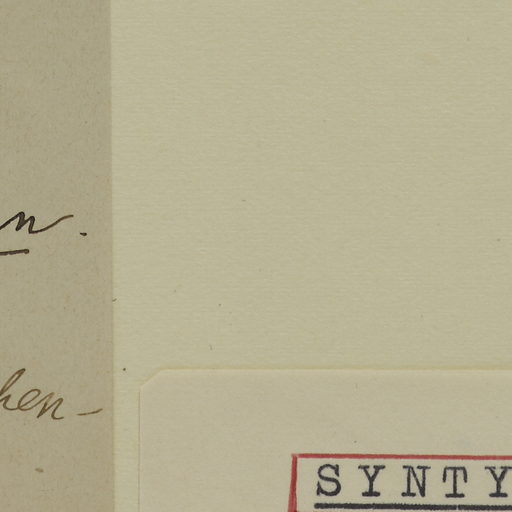 n.
hen-
SYNTY